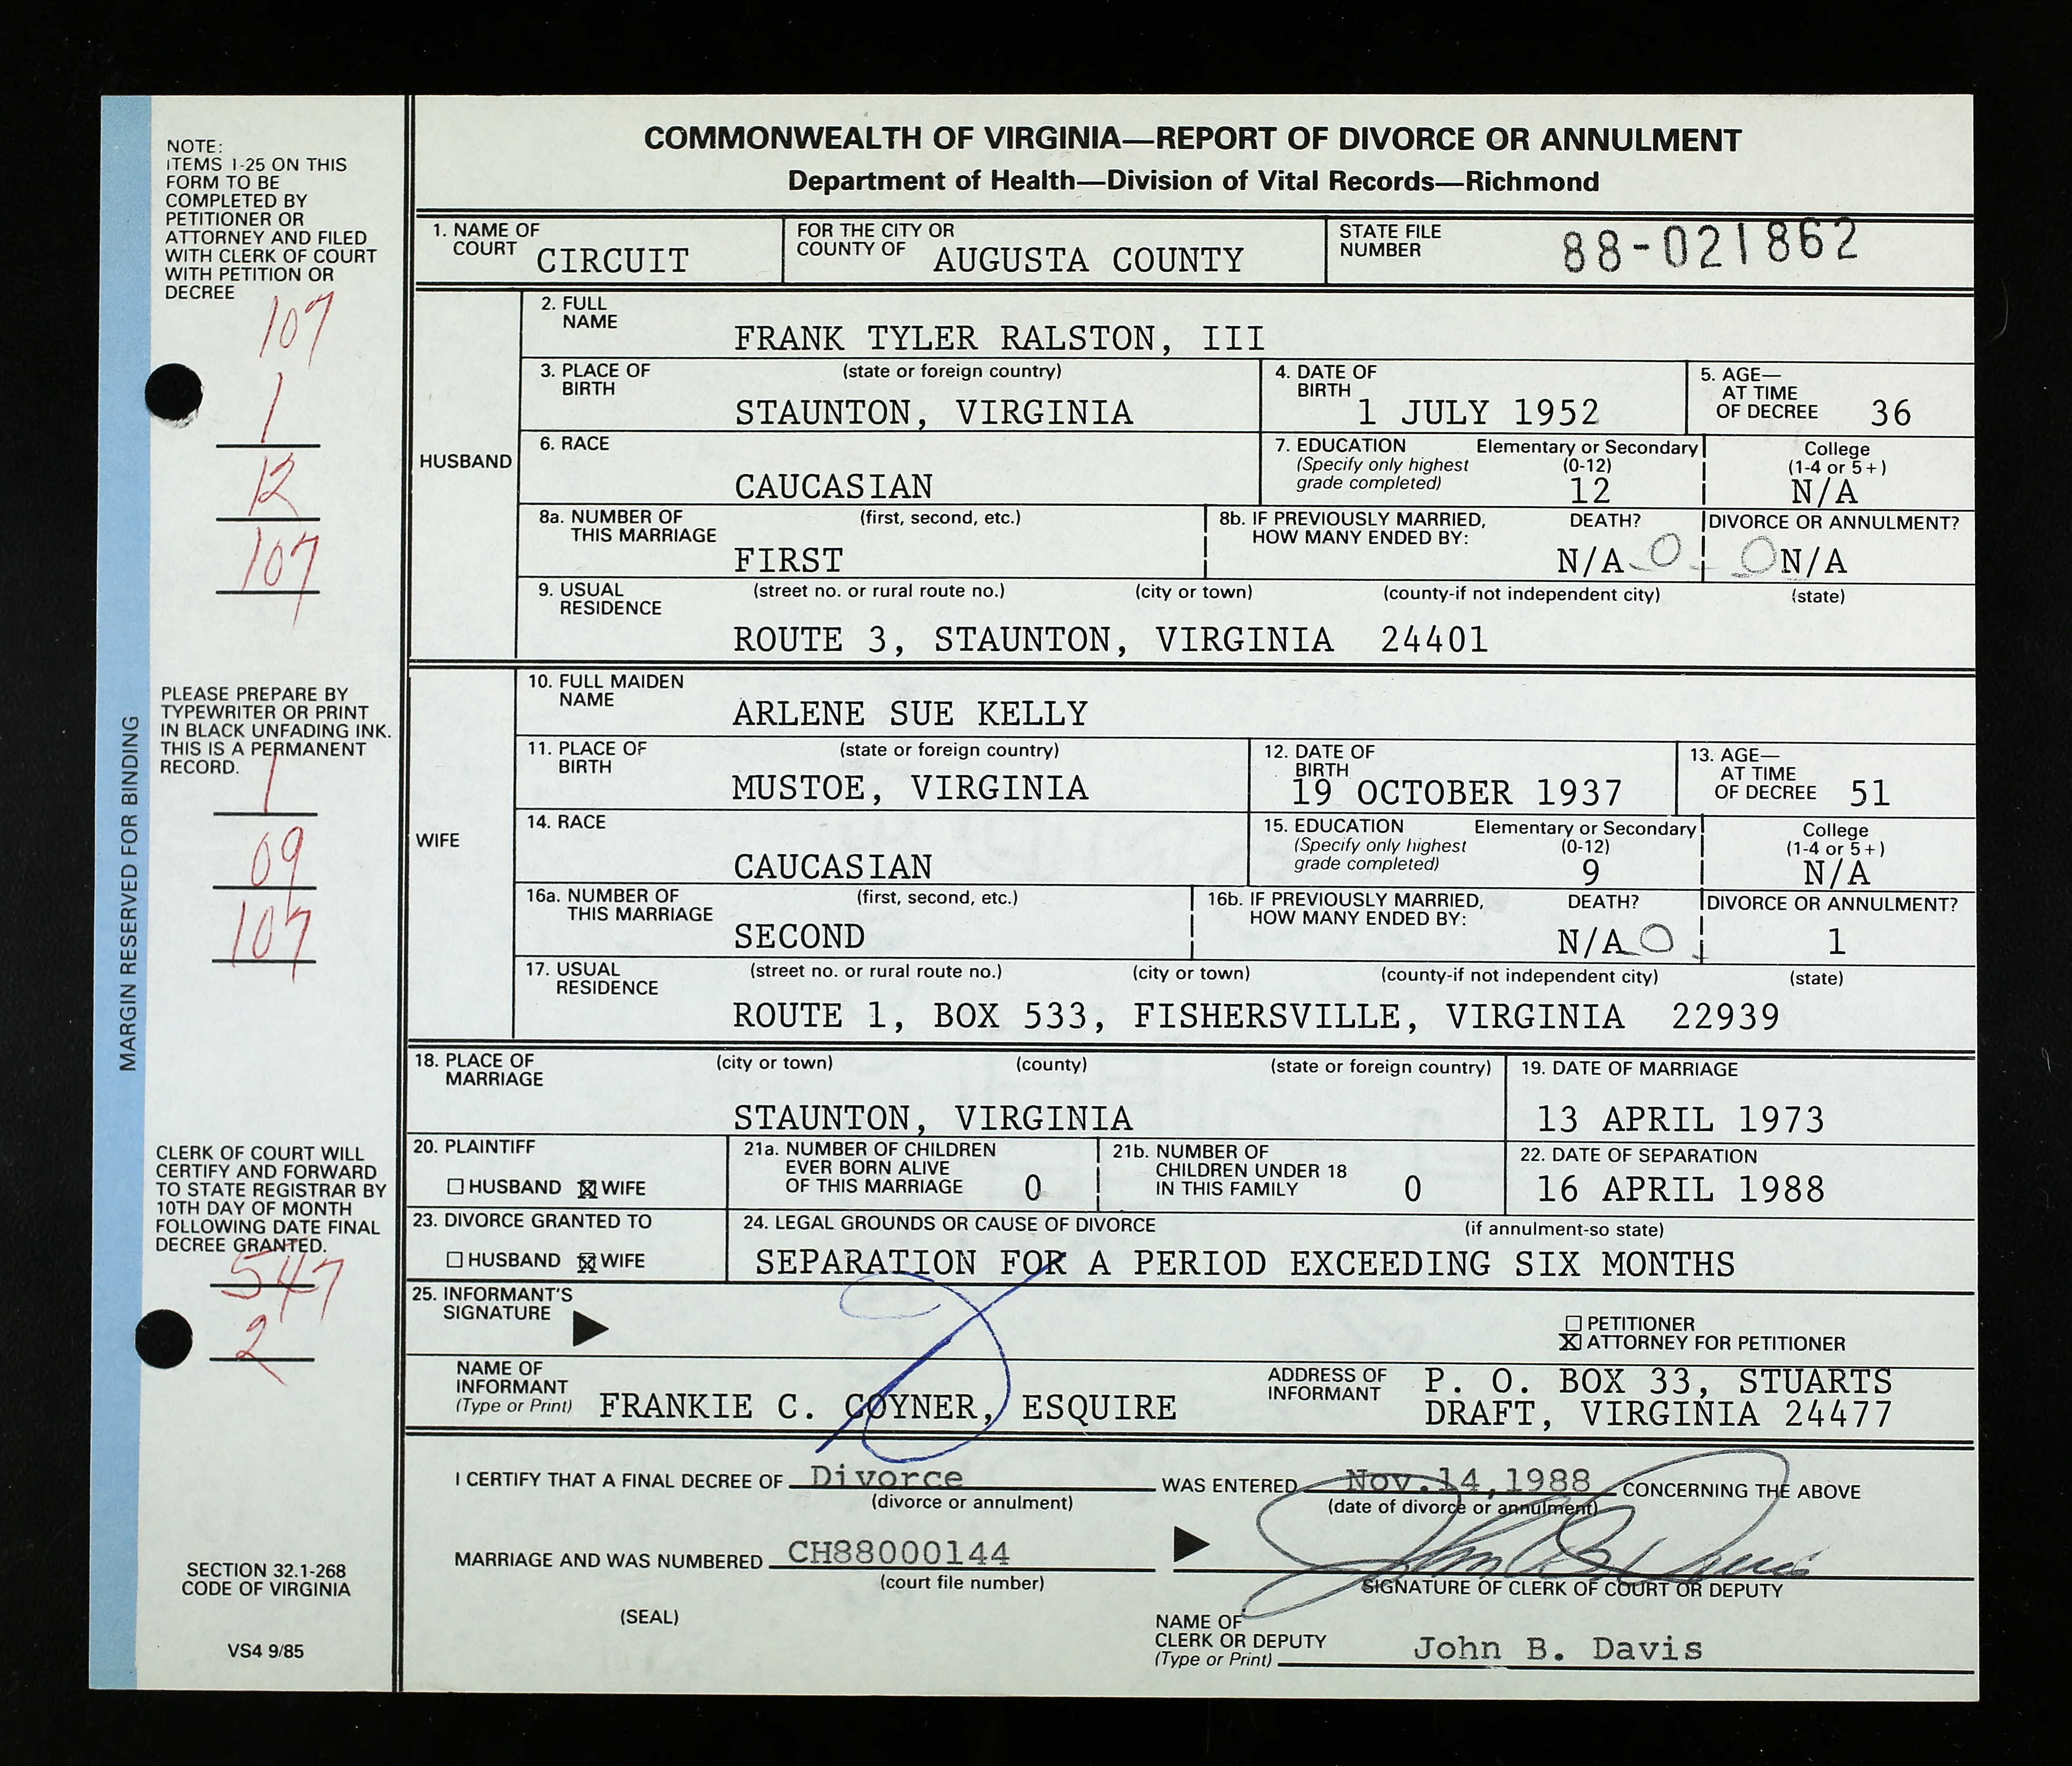 COMMONWEALTH OF VIRGINIA—REPORT OF DIVORCE OR ANNULMENT
Department of Health—Division of Vital Records—Richmond
MARGIN RESERVED FOR BINDING
NOTE:
ITEMS 1-25 ON THIS
FORM TO BE
COMPLETED BY
PETITIONER OR
ATTORNEY AND FILED
WITH CLERK OF COURT
WITH PETITION OR
DECREE
107
1
12
107
PLEASE PREPARE BY
TYPEWRITER OR PRINT
IN BLACK UNFADING INK.
THIS IS A PERMANENT
RECORD.
1
09
107
CLERK OF COURT WILL
CERTIFY AND FORWARD
TO STATE REGISTRAR BY
10TH DAY OF MONTH
FOLLOWING DATE FINAL
DECREE GRANTED.
547
2
SECTION 32.1-268
CODE OF VIRGINIA
VS4 9/85
1. NAME OF COURT CIRCUIT
FOR THE CITY OR COUNTY OF AUGUSTA COUNTY
STATE FILE NUMBER 88-021862
HUSBAND
2. FULL NAME
FRANK TYLER RALSTON, III
3. PLACE OF BIRTH (state or foreign country)
STAUNTON, VIRGINIA
4. DATE OF BIRTH 1 JULY 1952
5. AGE— AT TIME OF DECREE 36
6. RACE
CAUCASIAN
7. EDUCATION (Specify only highest grade completed)
Elementary or Secondary (0-12) 12
College (1-4 or 5+) N/A
8a. NUMBER OF THIS MARRIAGE (first, second, etc.)
FIRST
8b. IF PREVIOUSLY MARRIED, HOW MANY ENDED BY:
DEATH? N/A 0
DIVORCE OR ANNULMENT? 0 N/A
9. USUAL RESIDENCE (street no. or rural route no.) (city or town) (county-if not independent city) (state)
ROUTE 3, STAUNTON, VIRGINIA 24401
WIFE
10. FULL MAIDEN NAME
ARLENE SUE KELLY
11. PLACE OF BIRTH (state or foreign country)
MUSTOE, VIRGINIA
12. DATE OF BIRTH
19 OCTOBER 1937
13. AGE— AT TIME OF DECREE 51
14. RACE
CAUCASIAN
15. EDUCATION (Specify only highest grade completed)
Elementary or Secondary (0-12) 9
College (1-4 or 5+) N/A
16a. NUMBER OF THIS MARRIAGE (first, second, etc.)
SECOND
16b. IF PREVIOUSLY MARRIED, HOW MANY ENDED BY:
DEATH? N/A 0
DIVORCE OR ANNULMENT? 1
17. USUAL RESIDENCE (street no. or rural route no.) (city or town) (county-if not independent city) (state)
ROUTE 1, BOX 533, FISHERSVILLE, VIRGINIA 22939
18. PLACE OF MARRIAGE (city or town) (county) (state or foreign country)
STAUNTON, VIRGINIA
19. DATE OF MARRIAGE
13 APRIL 1973
20. PLAINTIFF
☐ HUSBAND ☒ WIFE
21a. NUMBER OF CHILDREN EVER BORN ALIVE OF THIS MARRIAGE 0
21b. NUMBER OF CHILDREN UNDER 18 IN THIS FAMILY 0
22. DATE OF SEPARATION
16 APRIL 1988
23. DIVORCE GRANTED TO
☐ HUSBAND ☒ WIFE
24. LEGAL GROUNDS OR CAUSE OF DIVORCE (if annulment-so state)
SEPARATION FOR A PERIOD EXCEEDING SIX MONTHS
25. INFORMANT'S SIGNATURE
☐ PETITIONER
☒ ATTORNEY FOR PETITIONER
NAME OF INFORMANT (Type or Print) FRANKIE C. COYNER, ESQUIRE
ADDRESS OF INFORMANT P. O. BOX 33, STUARTS
DRAFT, VIRGINIA 24477
I CERTIFY THAT A FINAL DECREE OF Divorce WAS ENTERED Nov.14,1988 CONCERNING THE ABOVE
(divorce or annulment) (date of divorce or annulment)
MARRIAGE AND WAS NUMBERED CH88000144
(court file number)
John B. Davis
SIGNATURE OF CLERK OF COURT OR DEPUTY
(SEAL)
NAME OF CLERK OR DEPUTY (Type or Print) John B. Davis